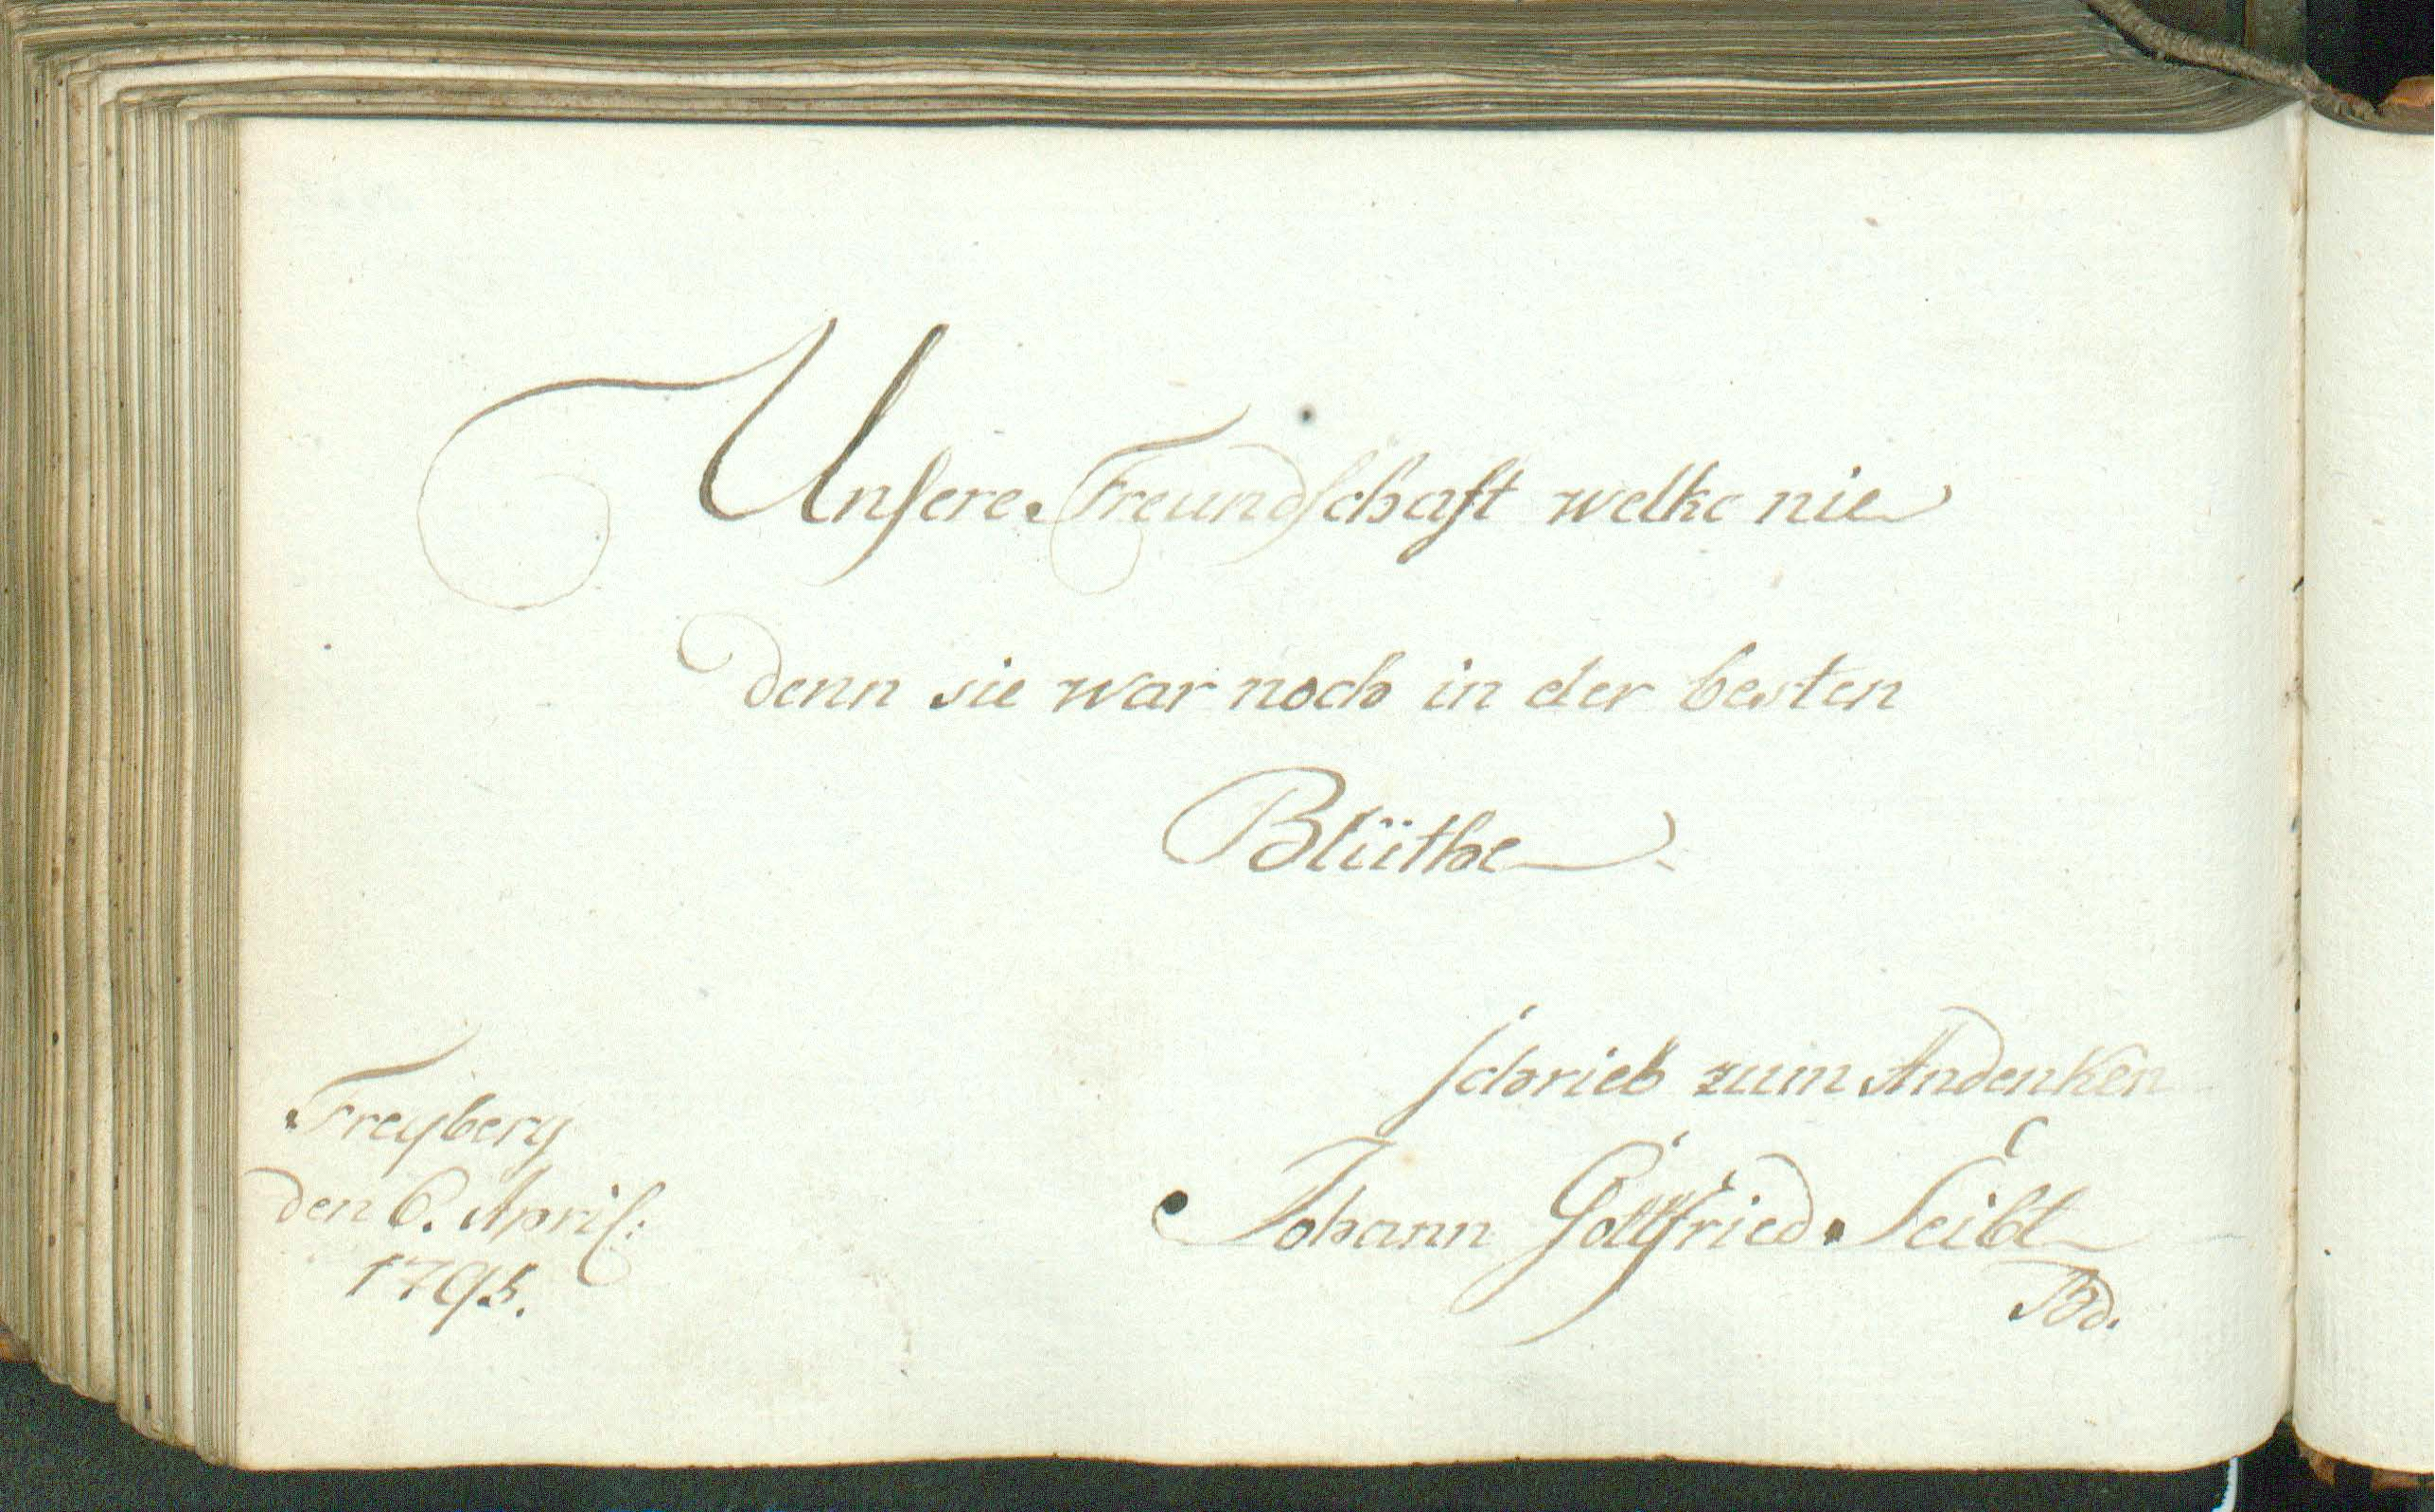 Unsere Freundschaft welke nie
Denn sie war noch in der besten
Blüthe
schrieb zum Andenken
Johann Gottfried Seibt
Freyberg
den 6. April:
1795.